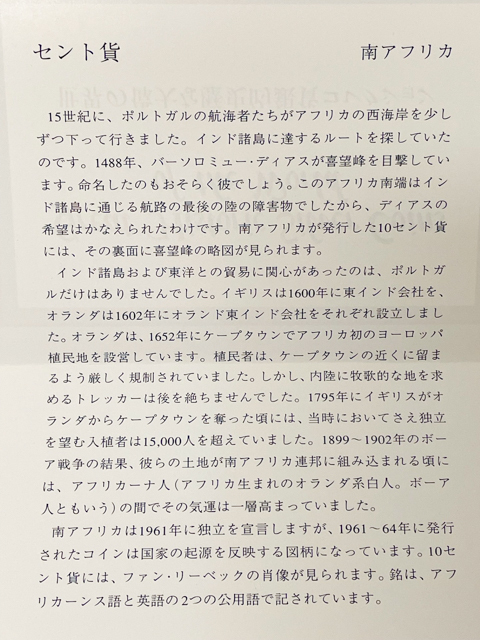 セント貨 南アフリカ
15世紀に、ポルトガルの航海者たちがアフリカの西海岸を少し
ずつ下って行きました。インド諸島に達するルートを探していた
のです。1488年、バーソロミュー・ディアスが喜望峰を目撃してい
ます。命名したのもおそらく彼でしょう。このアフリカ南端はイン
ド諸島に通じる航路の最後の陸の障害物でしたから、ディアスの
希望はかなえられたわけです。南アフリカが発行した10セント貨
には、その裏面に喜望峰の略図が見られます。
インド諸島および東洋との貿易に関心があったのは、ポルトガ
ルだけはありませんでした。イギリスは1600年に東インド会社を、
オランダは1602年にオランド東インド会社をそれぞれ設立しまし
た。オランダは、1652年にケープタウンでアフリカ初のヨーロッパ
植民地を設営しています。植民者は、ケープタウンの近くに留ま
るよう厳しく規制されていました。しかし、内陸に牧歌的な地を求
めるトレッカーは後を絶ちませんでした。1795年にイギリスがオ
ランダからケープタウンを奪った頃には、当時においてさえ独立
を望む入植者は15,000人を超えていました。1899～1902年のボー
ア戦争の結果、彼らの土地が南アフリカ連邦に組み込まれる頃に
は、アフリカーナ人（アフリカ生まれのオランダ系白人。ボーア
人ともいう）の間でその気運は一層高まっていました。
南アフリカは1961年に独立を宣言しますが、1961～64年に発行
されたコインは国家の起源を反映する図柄になっています。10セ
ント貨には、ファン・リーベックの肖像が見られます。銘は、アフ
リカーンス語と英語の2つの公用語で記されています。